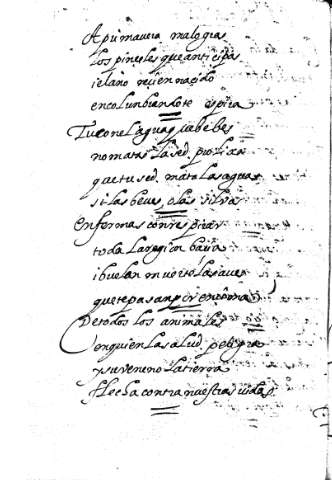 A primavera malogras
los pinceles que anticipas
i el año recien nacido
en columbrandote espira
Tu con el agua que bebes
no matas la sed prolixa
que tu sed mata las aguas
si las beves o las silvas
Enfermas con respirar
toda la region baxia
i buelan muertas las aves
que te pasan por encima
De todos los animales
en quien la salud peligra
y su veneno la tierra
flecha contra nuestras vidas